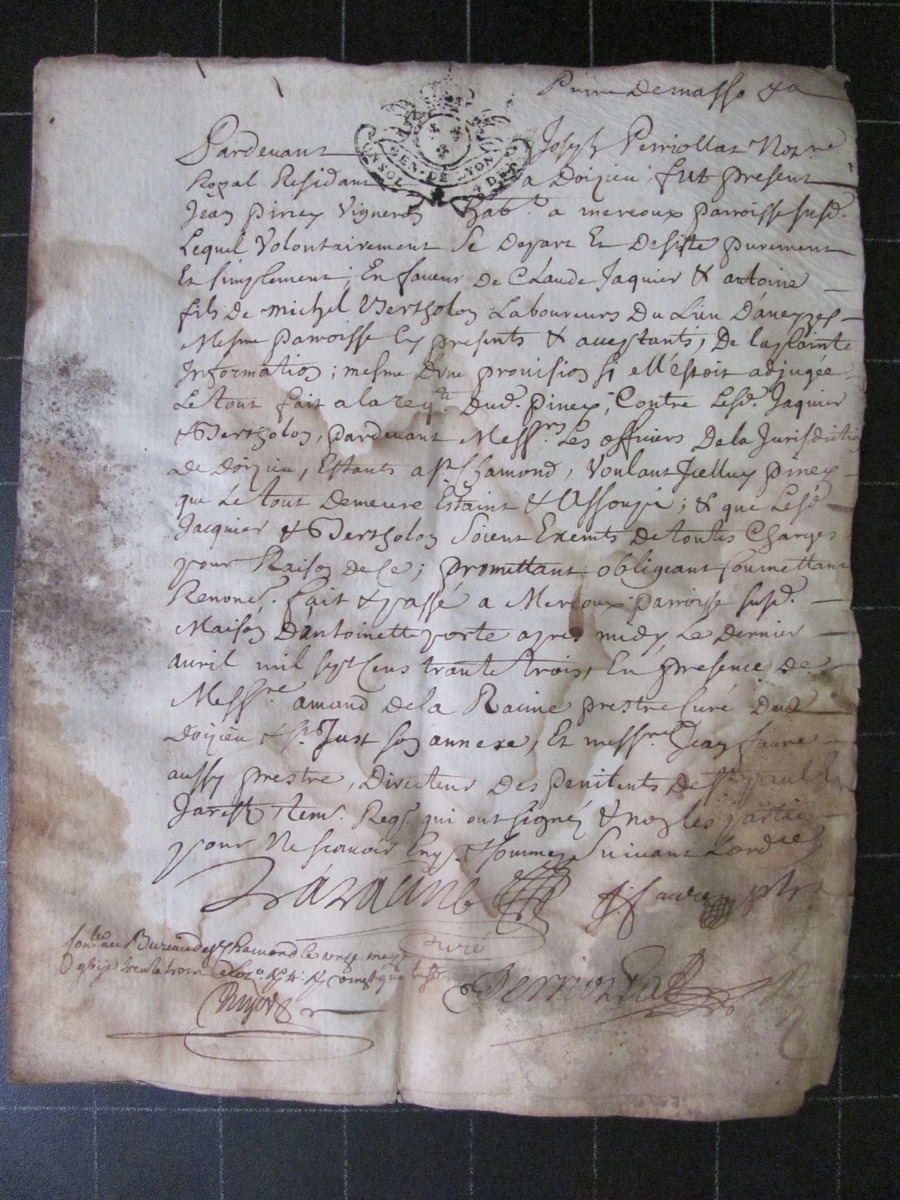 Pardevant Joseph Perriollat Notre
Royal Residant a Doizieu, fut present
Jean piney Vigneron hab.t a mercoux parroisse susd.
Lequel Volontairement Se Depart Et Desiste purement
Et simplement; En faveur de Claude Jaquier & antoine
fils de michel Bertholon Laboureurs Du Lieu
Mesme parroisse Cy presents & aceptants, De la plainte
Information; mesme D'une provision si ell'estoit adjugée
Le tout fait a la req.te Dud. piney, Contre Lesd. Jaquier
& Bertholon, pardevant Mess.rs Les officiers De la Jurisdiction
de Doizieu, Estants a St Chamond, Voulant Jcelluy piney
que Le tout Demeure Estaint & Assoupi; & que Lesd
Jacquier & Bertholon Soient Exemts De toutes Charges
pour Raison de Ce; promettant obligeant soumettant
Renonc. fait & passé a Mercoux parroisse susd.
Maison D'antoinette porte apres midy Le Dernier
avril mil sept Cens trante trois, En presence de
Mess.re amand de la Racine prestre Curé Dud
Doizieu & St Just son annexe, Et mess.re Jean faure
aussy prestre, Directeur Des penitents de St paul En
Jarest tem. Req. qui ont signé & non les parties
pour Ne scavoir Enq. & sommé Suivant Lord.ce
Laracine faure ptre
curé
Con.lé au Bureau de St Chamond le onze may
Perriollat